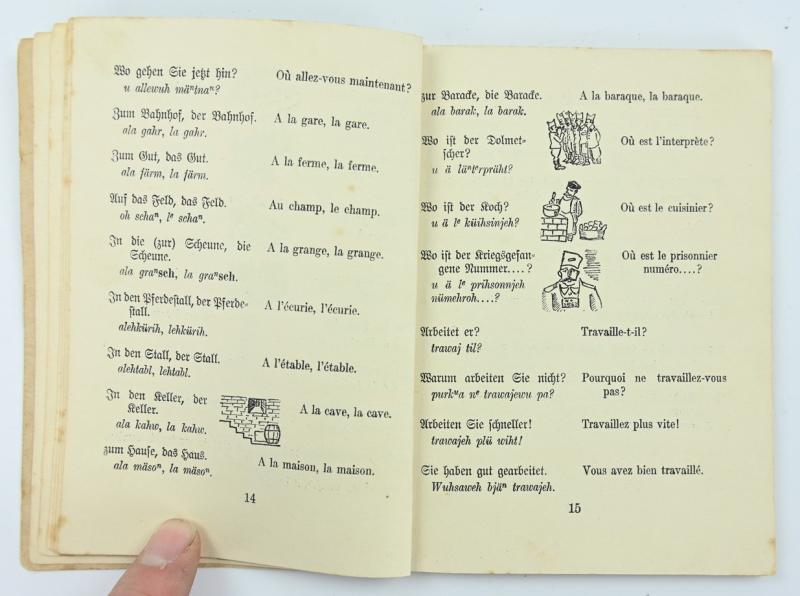 Wo gehen Sie jetzt hin? Où allez-vous maintenant?
u allewuh mäⁿtnaⁿ?
Zum Bahnhof, der Bahnhof. A la gare, la gare.
ala gahr, la gahr.
Zum Gut, das Gut. A la ferme, la ferme.
ala färm, la färm.
Auf das Feld, das Feld. Au champ, le champ.
oh schaⁿ, lᵉ schaⁿ.
In die (zur) Scheune, die A la grange, la grange.
Scheune.
ala graⁿseh, la graⁿseh.
In den Pferdestall, der Pferde- A l'écurie, l'écurie.
stall.
alehkürih, lehkürih.
In den Stall, der Stall. A l'étable, l'étable.
alehtabl, lehtabl.
In den Keller, der A la cave, la cave.
Keller.
ala kahw, la kahw.
zum Hause, das Haus. A la maison, la maison.
ala mäsoⁿ, la mäsoⁿ.
14
zur Baracke, die Baracke. A la baraque, la baraque.
ala barak, la barak.
Wo ist der Dolmet- Où est l'interprète?
scher?
u ä läⁿtᵉrpräht?
Wo ist der Koch? Où est le cuisinier?
u ä lᵉ küihsinjeh?
Wo ist der Kriegsgefan- Où est le prisonnier
gene Nummer....? numéro....?
u ä lᵉ prihsonnjeh
nümehroh....?
Arbeitet er? Travaille-t-il?
trawaj til?
Warum arbeiten Sie nicht? Pourquoi ne travaillez-vous
purkᵘa nᵉ trawajewu pa? pas?
Arbeiten Sie schneller! Travaillez plus vite!
trawajeh plü wiht!
Sie haben gut gearbeitet. Vous avez bien travaillé.
Wuhsaweh bjäⁿ trawajeh.
15